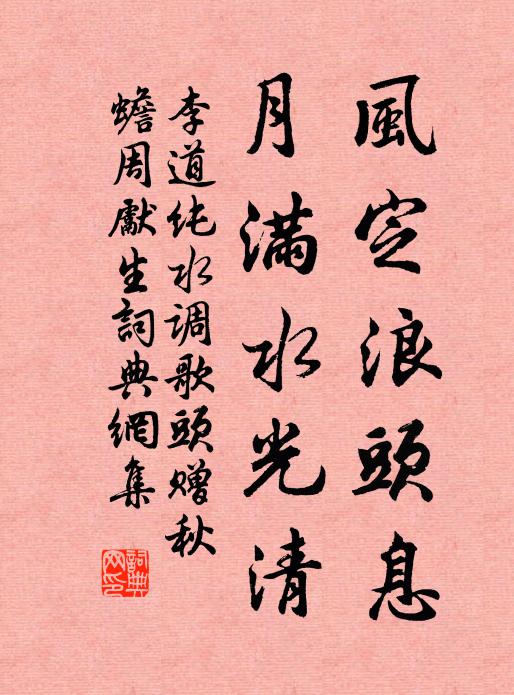 風定浪頭息
月滿水光清
李道纯水调歌頭赠秋
蟾周獻生詞典網集
詞典網印